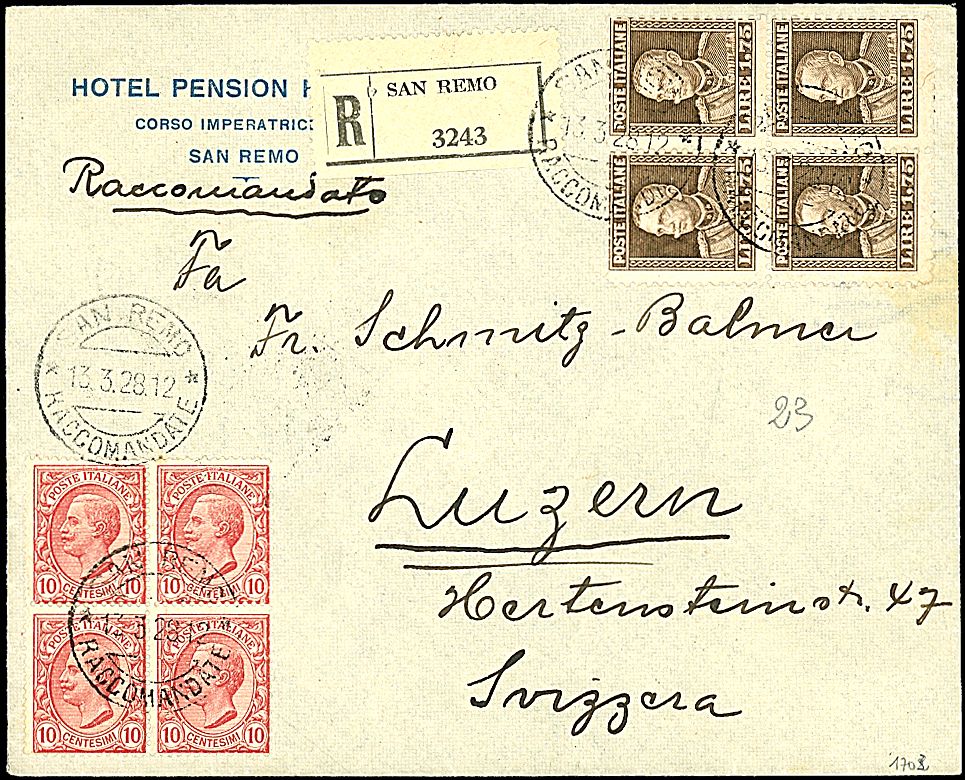 HOTEL PENSION
CORSO IMPERATRIC
SAN REMO
R SAN REMO
3243
Raccomandato
Fa
Fr. Schmitz-Balmer
Luzern
Hertensteinstr. 47
Svizzera
23
SAN REMO
13.3.28.12
RACCOMANDATE
POSTE ITALIANE LIRE 1.75
POSTE ITALIANE LIRE 1.75
POSTE ITALIANE LIRE 1.75
POSTE ITALIANE LIRE 1.75
13.3.28.12
POSTE ITALIANE
10 CENTESIMI 10
POSTE ITALIANE
10 CENTESIMI 10
10 CENTESIMI 10
10 CENTESIMI 10
RACCOMANDATE